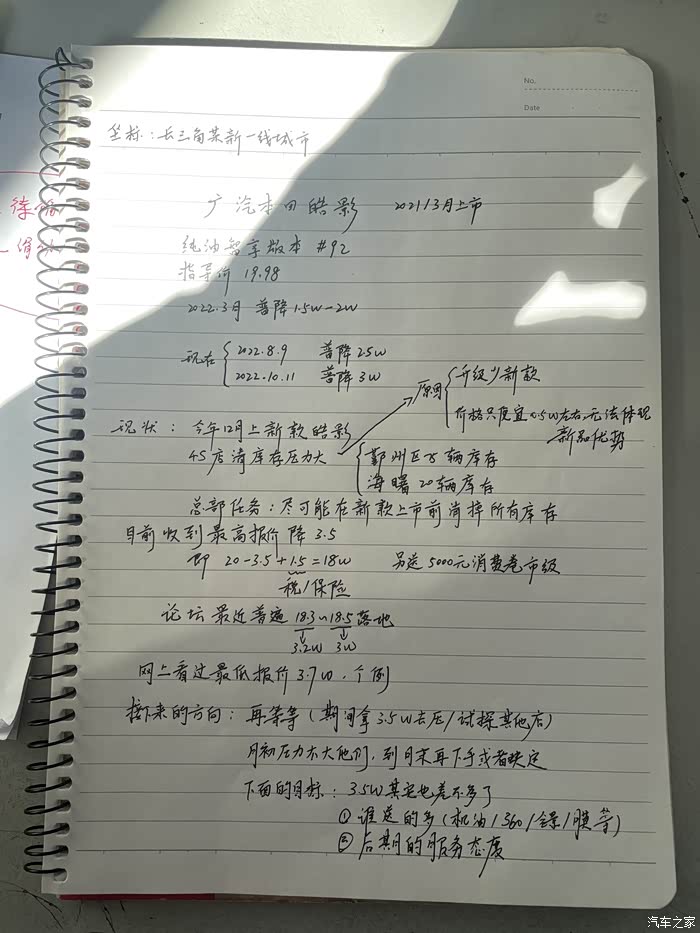 No.
Date
坐标：长三角某新一线城市
广汽本田皓影 2021/3月上市
纯油智享版本 #92
指导价 19.98
2022.3月 普降1.5W-2W
现在 2022.8.9 普降2.5W
2022.10.11 普降3W
原因 升级为新款
价格只便宜0.5W左右,无法体现
新品优势
现状：今年12月上新款皓影
4S店清库存压力大
鄞州区75辆库存
海曙20辆库存
总部任务：尽可能在新款上市前消掉所有库存
目前收到最高报价降3.5
即 20-3.5+1.5=18W 另送5000元消费卷市级
税/保险
论坛最近普遍18.3~18.5落地
3.2W 3W
网上看过最低报价3.7W.个例
接下来的方向：再等等（期间拿3.5W去压/试探其他店）
月初压力不大他们,到月末再下手或者决定
下面的目标：3.5W其实也差不多了
① 谁送的多(机油/360/全景/膜等)
② 后期的服务态度
汽车之家